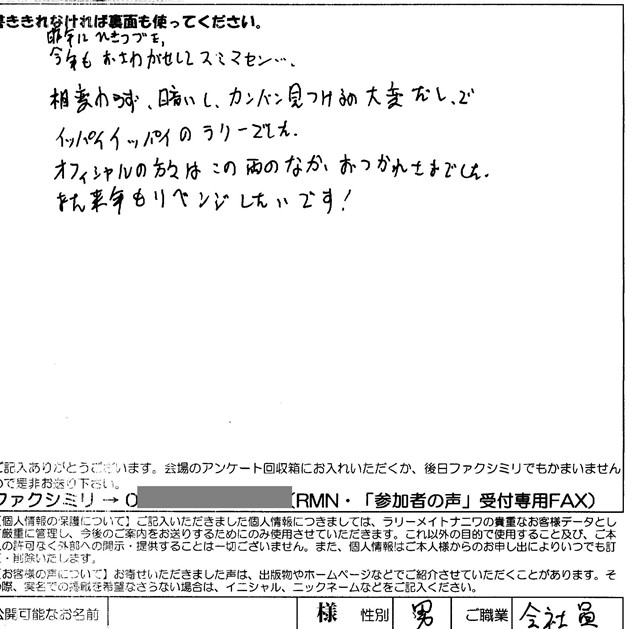 書ききれなければ裏面も使ってください。
昨年にひきつづき、
今年もおさわがせしてスミマセン…、
相変わらず、暗いし、カンバン見つけるの大変だし、で
イッパイイッパイのラリーでした。
オフィシャルの方々はこの雨のなか、おつかれさまでした。
また来年もリベンジしたいです！
ご記入ありがとうございます。会場のアンケート回収箱にお入れいただくか、後日ファクシミリでもかまいません
ので是非お送り下さい。
ファクシミリ → 0 (RMN・「参加者の声」受付専用FAX)
【個人情報の保護について】ご記入いただきました個人情報につきましては、ラリーメイトナニワの貴重なお客様データとし
厳重に管理し、今後のご案内をお送りするためにのみ使用させていただきます。これ以外の目的で使用すること及び、ご本
人の許可なく外部への開示・提供することは一切ございません。また、個人情報はご本人様からのお申し出によりいつでも訂
正・削除いたします。
【お客様の声について】お寄せいただきました声は、出版物やホームページなどでご紹介させていただくことがあります。そ
の際、実名での掲載を希望なさらない場合は、イニシャル、ニックネームなどをご記入ください。
公開可能なお名前 様 性別 男 ご職業 会社員